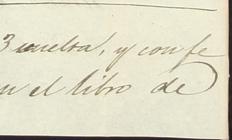 3 vuelta, y con fe
n el libro de